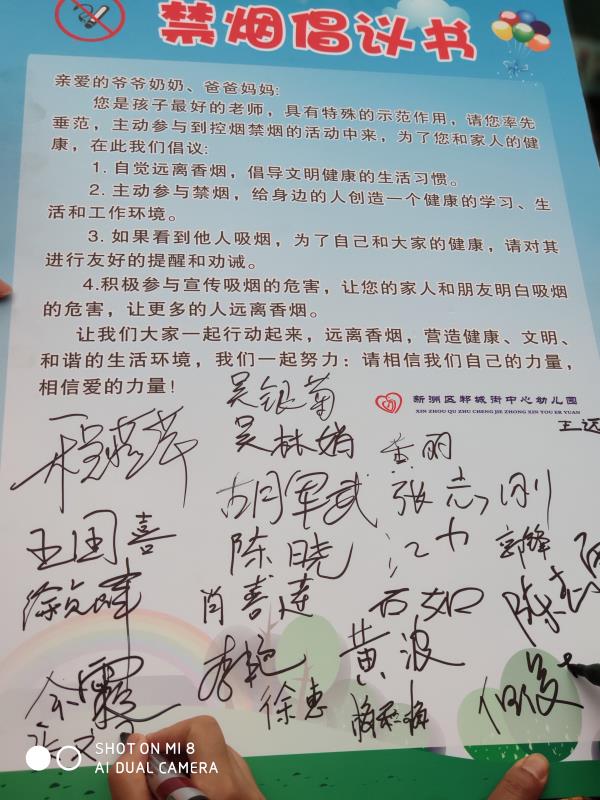 禁烟倡议书
亲爱的爷爷奶奶、爸爸妈妈:
您是孩子最好的老师，具有特殊的示范作用，请您率先
垂范，主动参与到控烟禁烟的活动中来，为了您和家人的健
康，在此我们倡议:
1. 自觉远离香烟，倡导文明健康的生活习惯。
2. 主动参与禁烟，给身边的人创造一个健康的学习、生
活和工作环境。
3. 如果看到他人吸烟，为了自己和大家的健康，请对其
进行友好的提醒和劝诫。
4.积极参与宣传吸烟的危害，让您的家人和朋友明白吸烟
的危害，让更多的人远离香烟。
让我们大家一起行动起来，远离香烟，营造健康、文明、
和谐的生活环境，我们一起努力: 请相信我们自己的力量，
相信爱的力量!
新洲区邾城街中心幼儿园
XIN ZHOU QU ZHU CHENG JIE ZHONG XIN YOU ER YUAN
吴银菊
吴林娟
胡军武 张志刚
王国喜 陈晓 江力 郭锋
肖喜莲
李艳 黄波
余霞 徐惠
SHOT ON MI 8
AI DUAL CAMERA